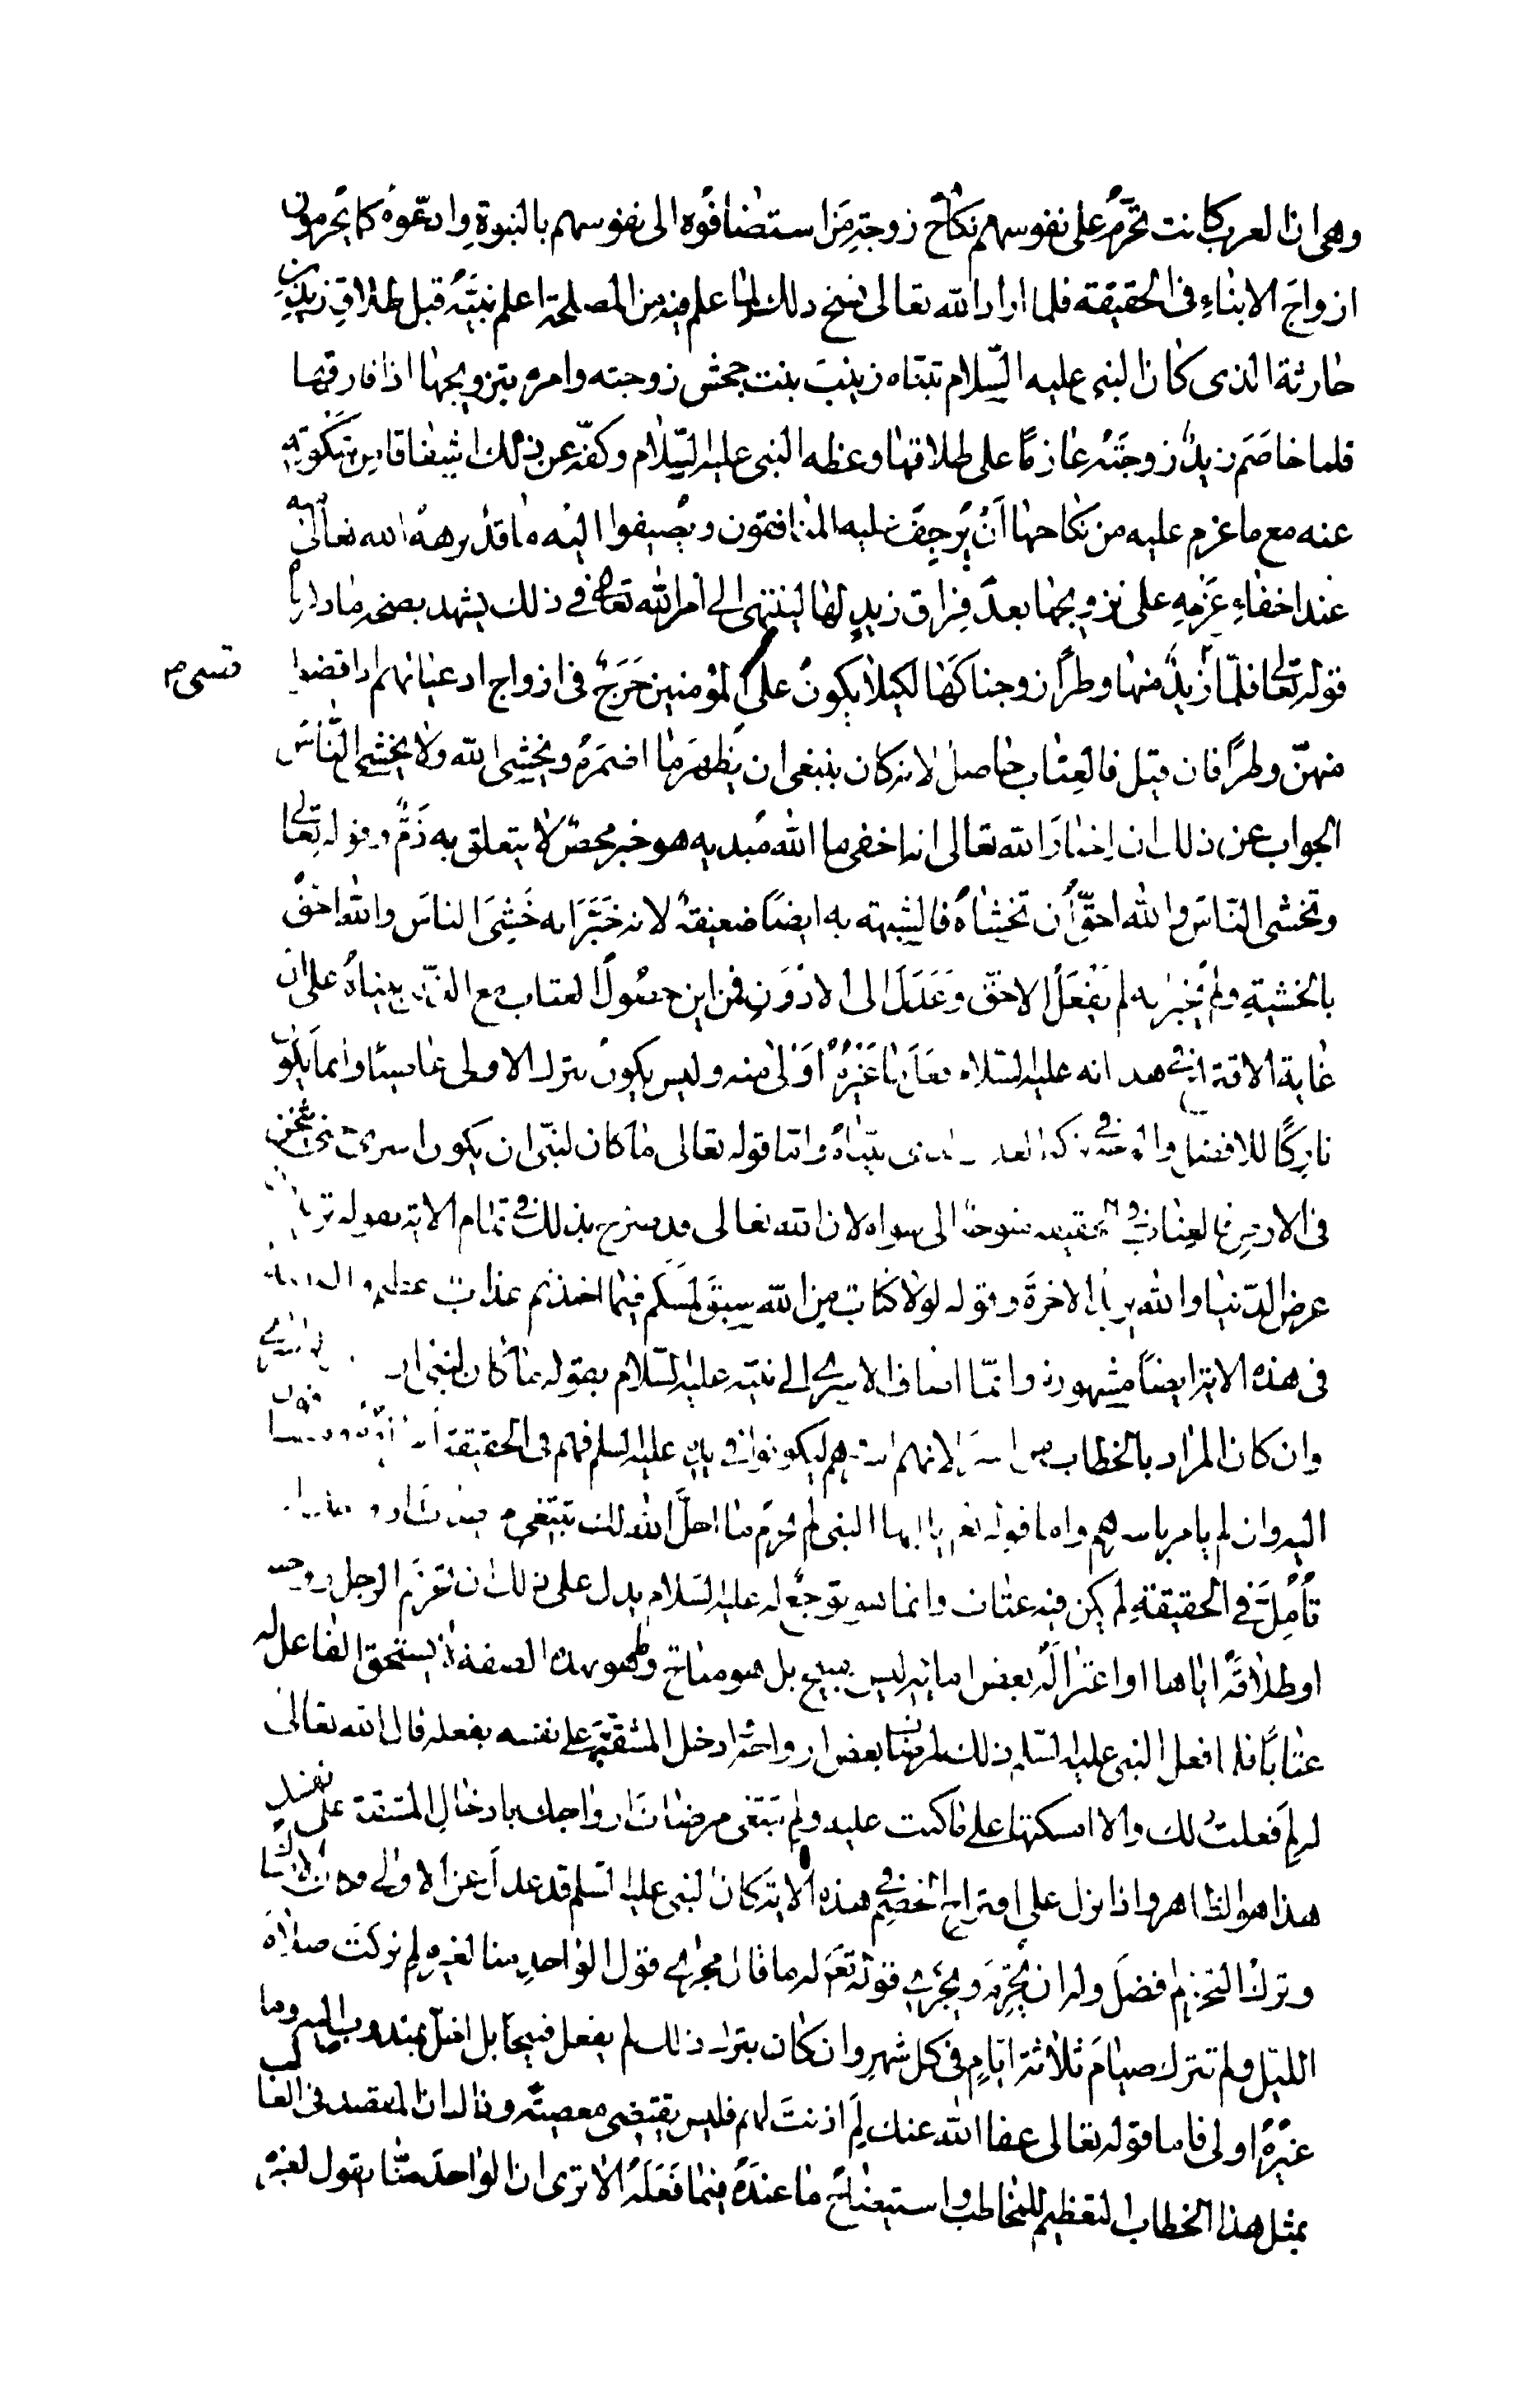 وهى ان العرب كانت تحرّم على نفوسهم نكاح زوجة من استضافوه الى نفوسهم بالبنوة وادعوه كما يحرمون
ازواج الابناء فى الحقيقة فلما اراد الله تعالى نسخ ذلك لما علم فيه من المصلحة اعلم نبيّه قبل طلاق زيد بن
حارثة الذى كان النبى عليه السّلام تبنّاه زينب بنت جحش زوجته وامره بتزويجها اذا فارقها
فلما خاصَم زيدٌ زوجتَه عازمًا على طلاقها وعظه النبى عليه السّلام وكفّه عن ذلك اشفاقا من سكوته
عنه مع ما عزم عليه من نكاحها أنْ يُرجِفَ عليه المنافقون ويضيفوا اليه ما قد نزهه الله تعالى عنه
عند اخفاءِ عَزمِه على تزويجها بعدَ فِراق زيدٍ لها لينتهى الى امر الله تعالى فى ذلك يشهد بصحة ما ذكرنا
قوله تعالى فلمّا قضى زيدٌ منها وطرًا زوجناكها لكيلا يكونَ على المؤمنين حَرَجٌ فى ازواج ادعيائهم اذا قضوا
منهنّ وطرًا فان قيل فالعتاب حاصل لانه كان ينبغى ان يُظهِرَ ما اضمَرَهُ ويخشى الله ولا يخشى النّاسَ
الجواب عن ذلك ان اخبارَ الله تعالى انه اخفى ما الله مُبديه هو خبر محضٌ لا يتعلق به ذَمٌّ وقوله تعالى
وتخشى النّاس والله احقّ أن تخشاهُ فالشبهة به ايضًا ضعيفةٌ لانه خَبَّرَ انه خَشِىَ الناسَ والله احقّ
بالخشيةِ ولم يُخبِر انه لم يَفعَل الاحقّ وَعَدَلَ الى الادْوَنِ فمن اين حصولُ العتاب مع بيناهُ على ان
غاية انه عليه السّلام فعَلَ ما غَيرُهُ اَوْلى منه وليس يكونُ بترك الاولى عاصيًا وانما يكون
تاركًا للافضل تبنّاهُ وامّا قوله تعالى ما كان لنبىّ ان يكون له اسرى حتى يثخن
فى الارض فالعتاب فى الحقيقة متوجه الى سواه لان الله تعالى قد صرح بذلك فى تمام الاية بقوله تريدون
عرض الدّنيا والله يريد الاخرةَ وقوله لولا كتاب مِن الله سبقَ لمسّكم فيما اخذتم عذاب عظيم
فى هذه الاية ايضًا مشهورة وانّما اضاف الاسرى الى نبيّه عليه السّلام بقوله ما كان لنبى ان
وان كان المراد بالخطاب لانهم ليكونوا فى عليه السّلم فهم فى الحقيقة
اليه وان لم يامر باسرهم واما قوله تعالى يا ايها النبى لم تُحرّم ما احلَّ الله لك تبتغى
تُأُمِلَ فى الحقيقةِ لم يكن فيه عتاب وانما هو توجّع له عليه السّلام يدل على ذلك ان تحريم الرجل زوجته
او طلاقَه اياها او اعتزالَه بعض امائه ليس بقبيح بل هو مباح وما هو بهذه الصفة لا يستحق الفاعل له
عتابًا فلما فعل النبى عليه السّلم ذلك لمرضاة بعض ازواجه ادخل المشقّةَ على نفسه بفعله فقال الله تعالى
له لِمَ فعلتَ ذلك والا امسكتها على ما كنت عليه ولم تبتغى مرضاتَ ازواجك بادخال المشقة على نفسك
هذا هو الظاهر واذا نزل على اقتراح الخصم فى هذه الاية كان النبى عليه السّلم قد عدل عن الاولى
وتركُ التحريم افضلَ وله ان يُحرّمَ ويجرى قوله تعالى له ما قال مجرى قول الواحدِ منا لغيره لِمَ تركتَ صلاةَ
اللّيل ولم تترك صيامَ ثلاثة ايّامٍ فى كل شهرٍ وان كان بترك ذلك لم يفعل قبيحًا بل اخلّ بمندوب اليه وما
غيرُهُ اولى فاما قوله تعالى عفا الله عنك لِمَ اذنتَ لهم فليس يقتضى معصيتَه وذاك ان المقصد فى الغالب
بمثل هذا الخطاب التعظيم للمخاطب واستيضاح ما عندَهُ فيما فَعَلَهُ الا ترى ان الواحدَ منّا يقول لغيره